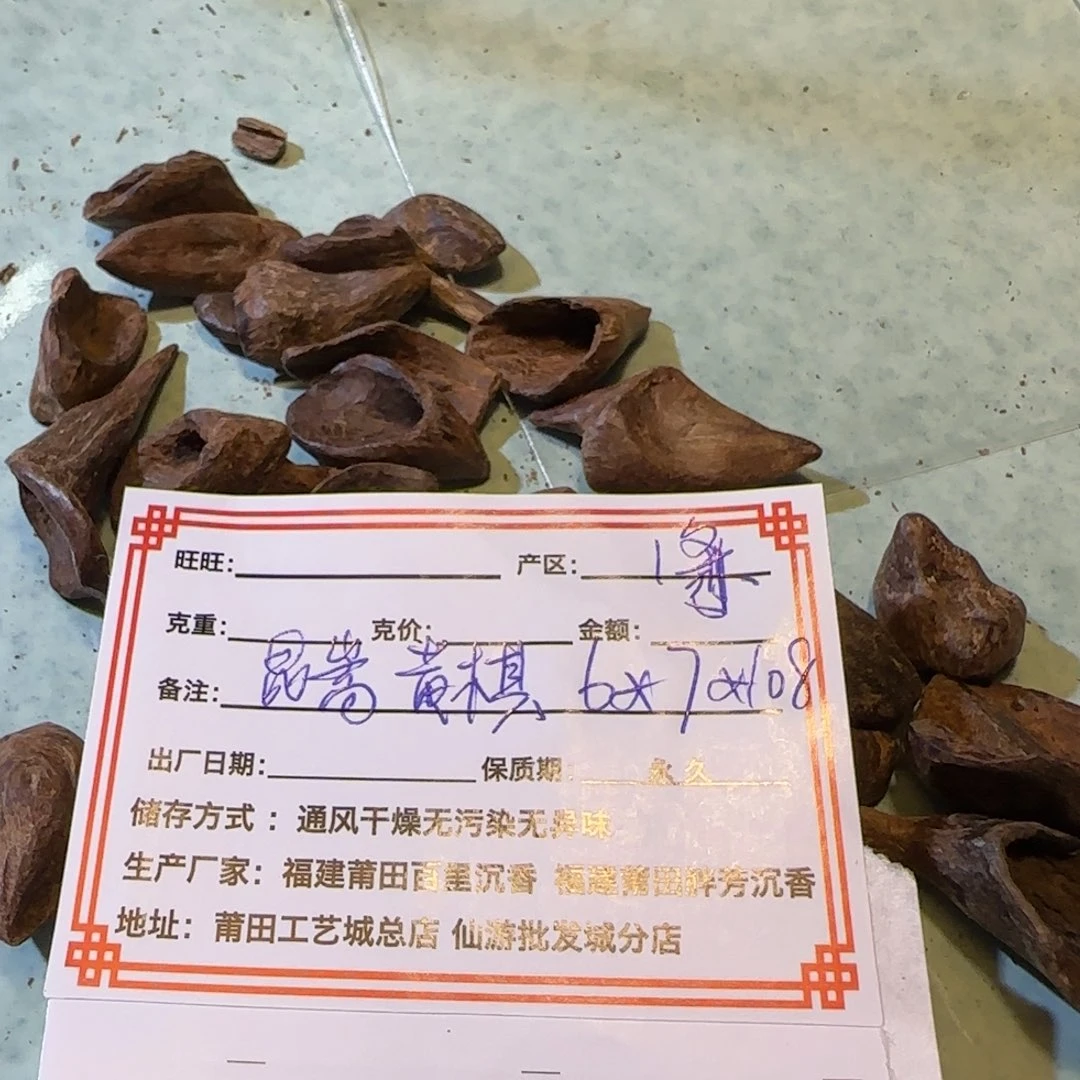 旺旺： 产区： 1条
克重： 克价： 金额：
备注： 昆嵩 黄棋 6*7*108
出厂日期： 保质期： 永久
储存方式：通风干燥无污染无异味
生产厂家：福建莆田百里沉香 福建莆田胖芳沉香
地址：莆田工艺城总店 仙游批发城分店